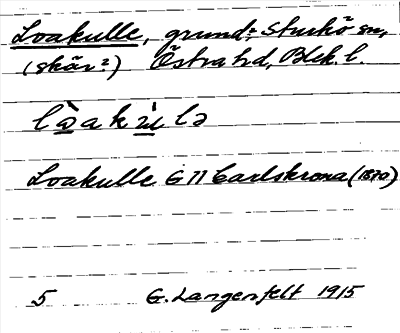 Loakulle, grund; Sturkö sn,
(skär?) Östra hd, Blek. l.
lòakùlə
Loakulle G11 Carlskrona (1870)
5 G. Langenfelt 1915